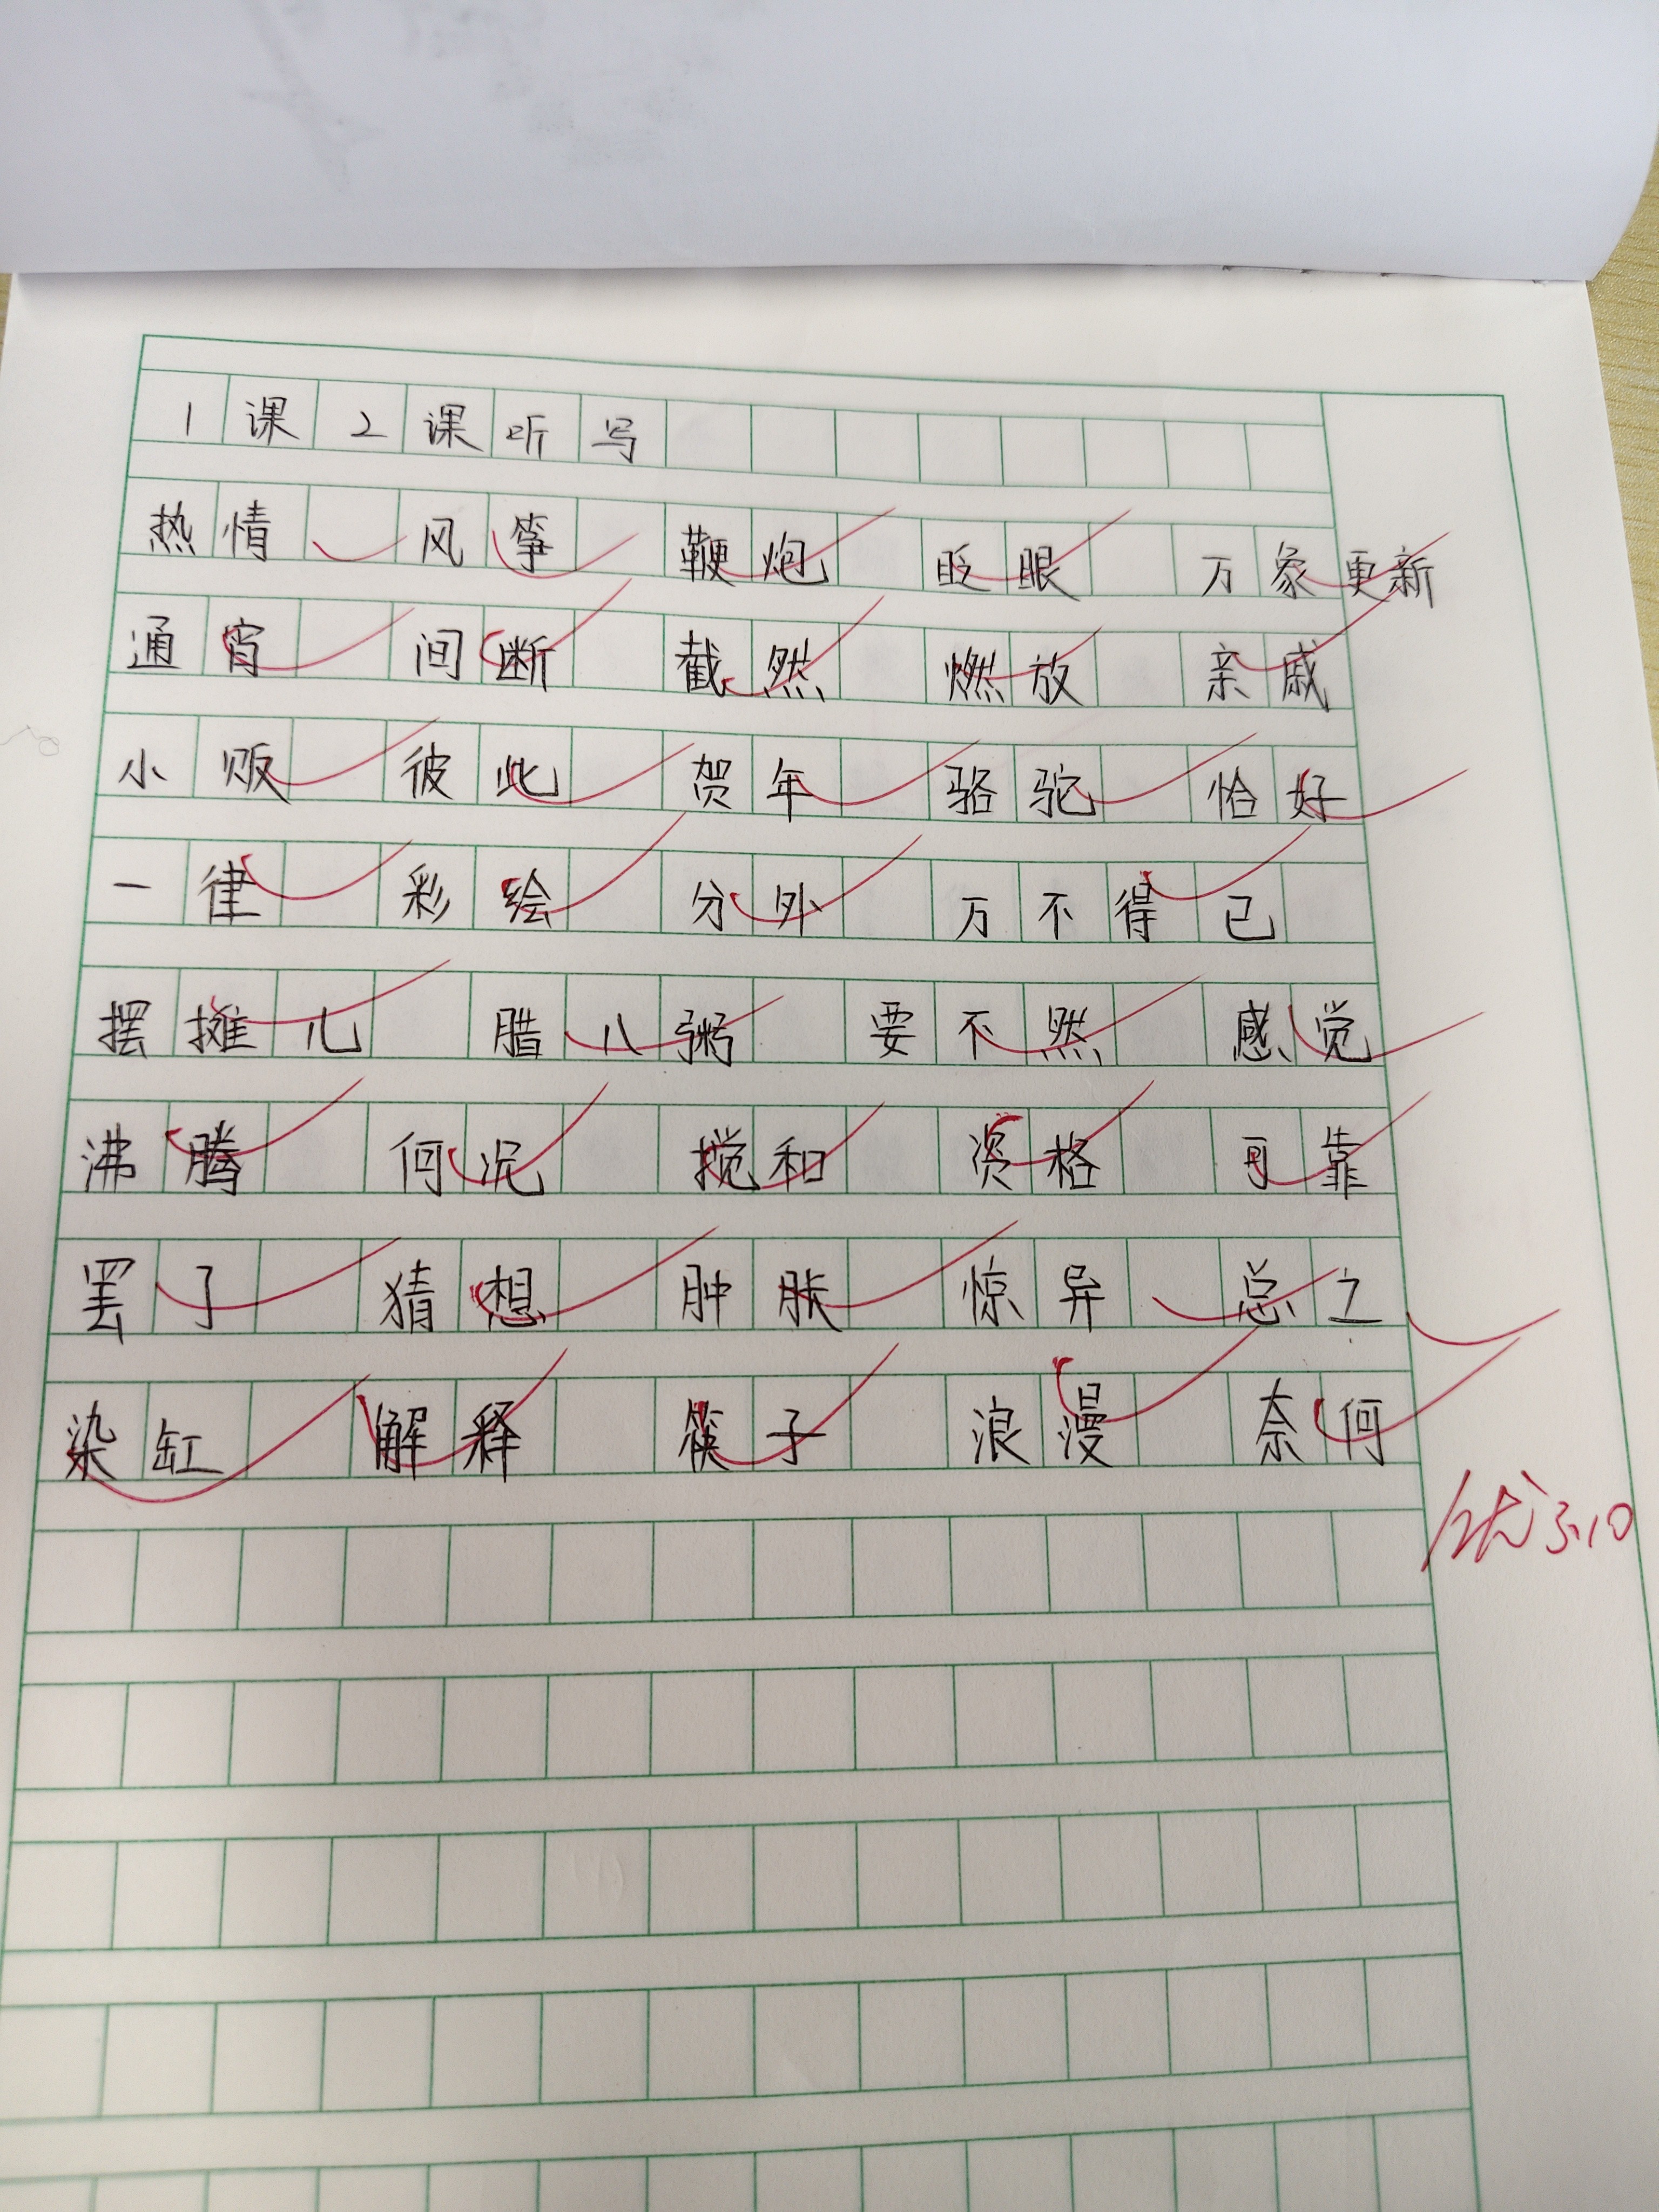 1课2课听写
热情 风筝 鞭炮 眨眼 万象更新
通宵 间断 截然 燃放 亲戚
小贩 彼此 贺年 骆驼 恰好
一律 彩绘 分外 万不得已
摆摊儿 腊八粥 要不然 感觉
沸腾 何况 搅和 资格 可靠
罢了 猜想 肿胀 惊异 总之
染缸 解释 筷子 浪漫 奈何
优 3.10